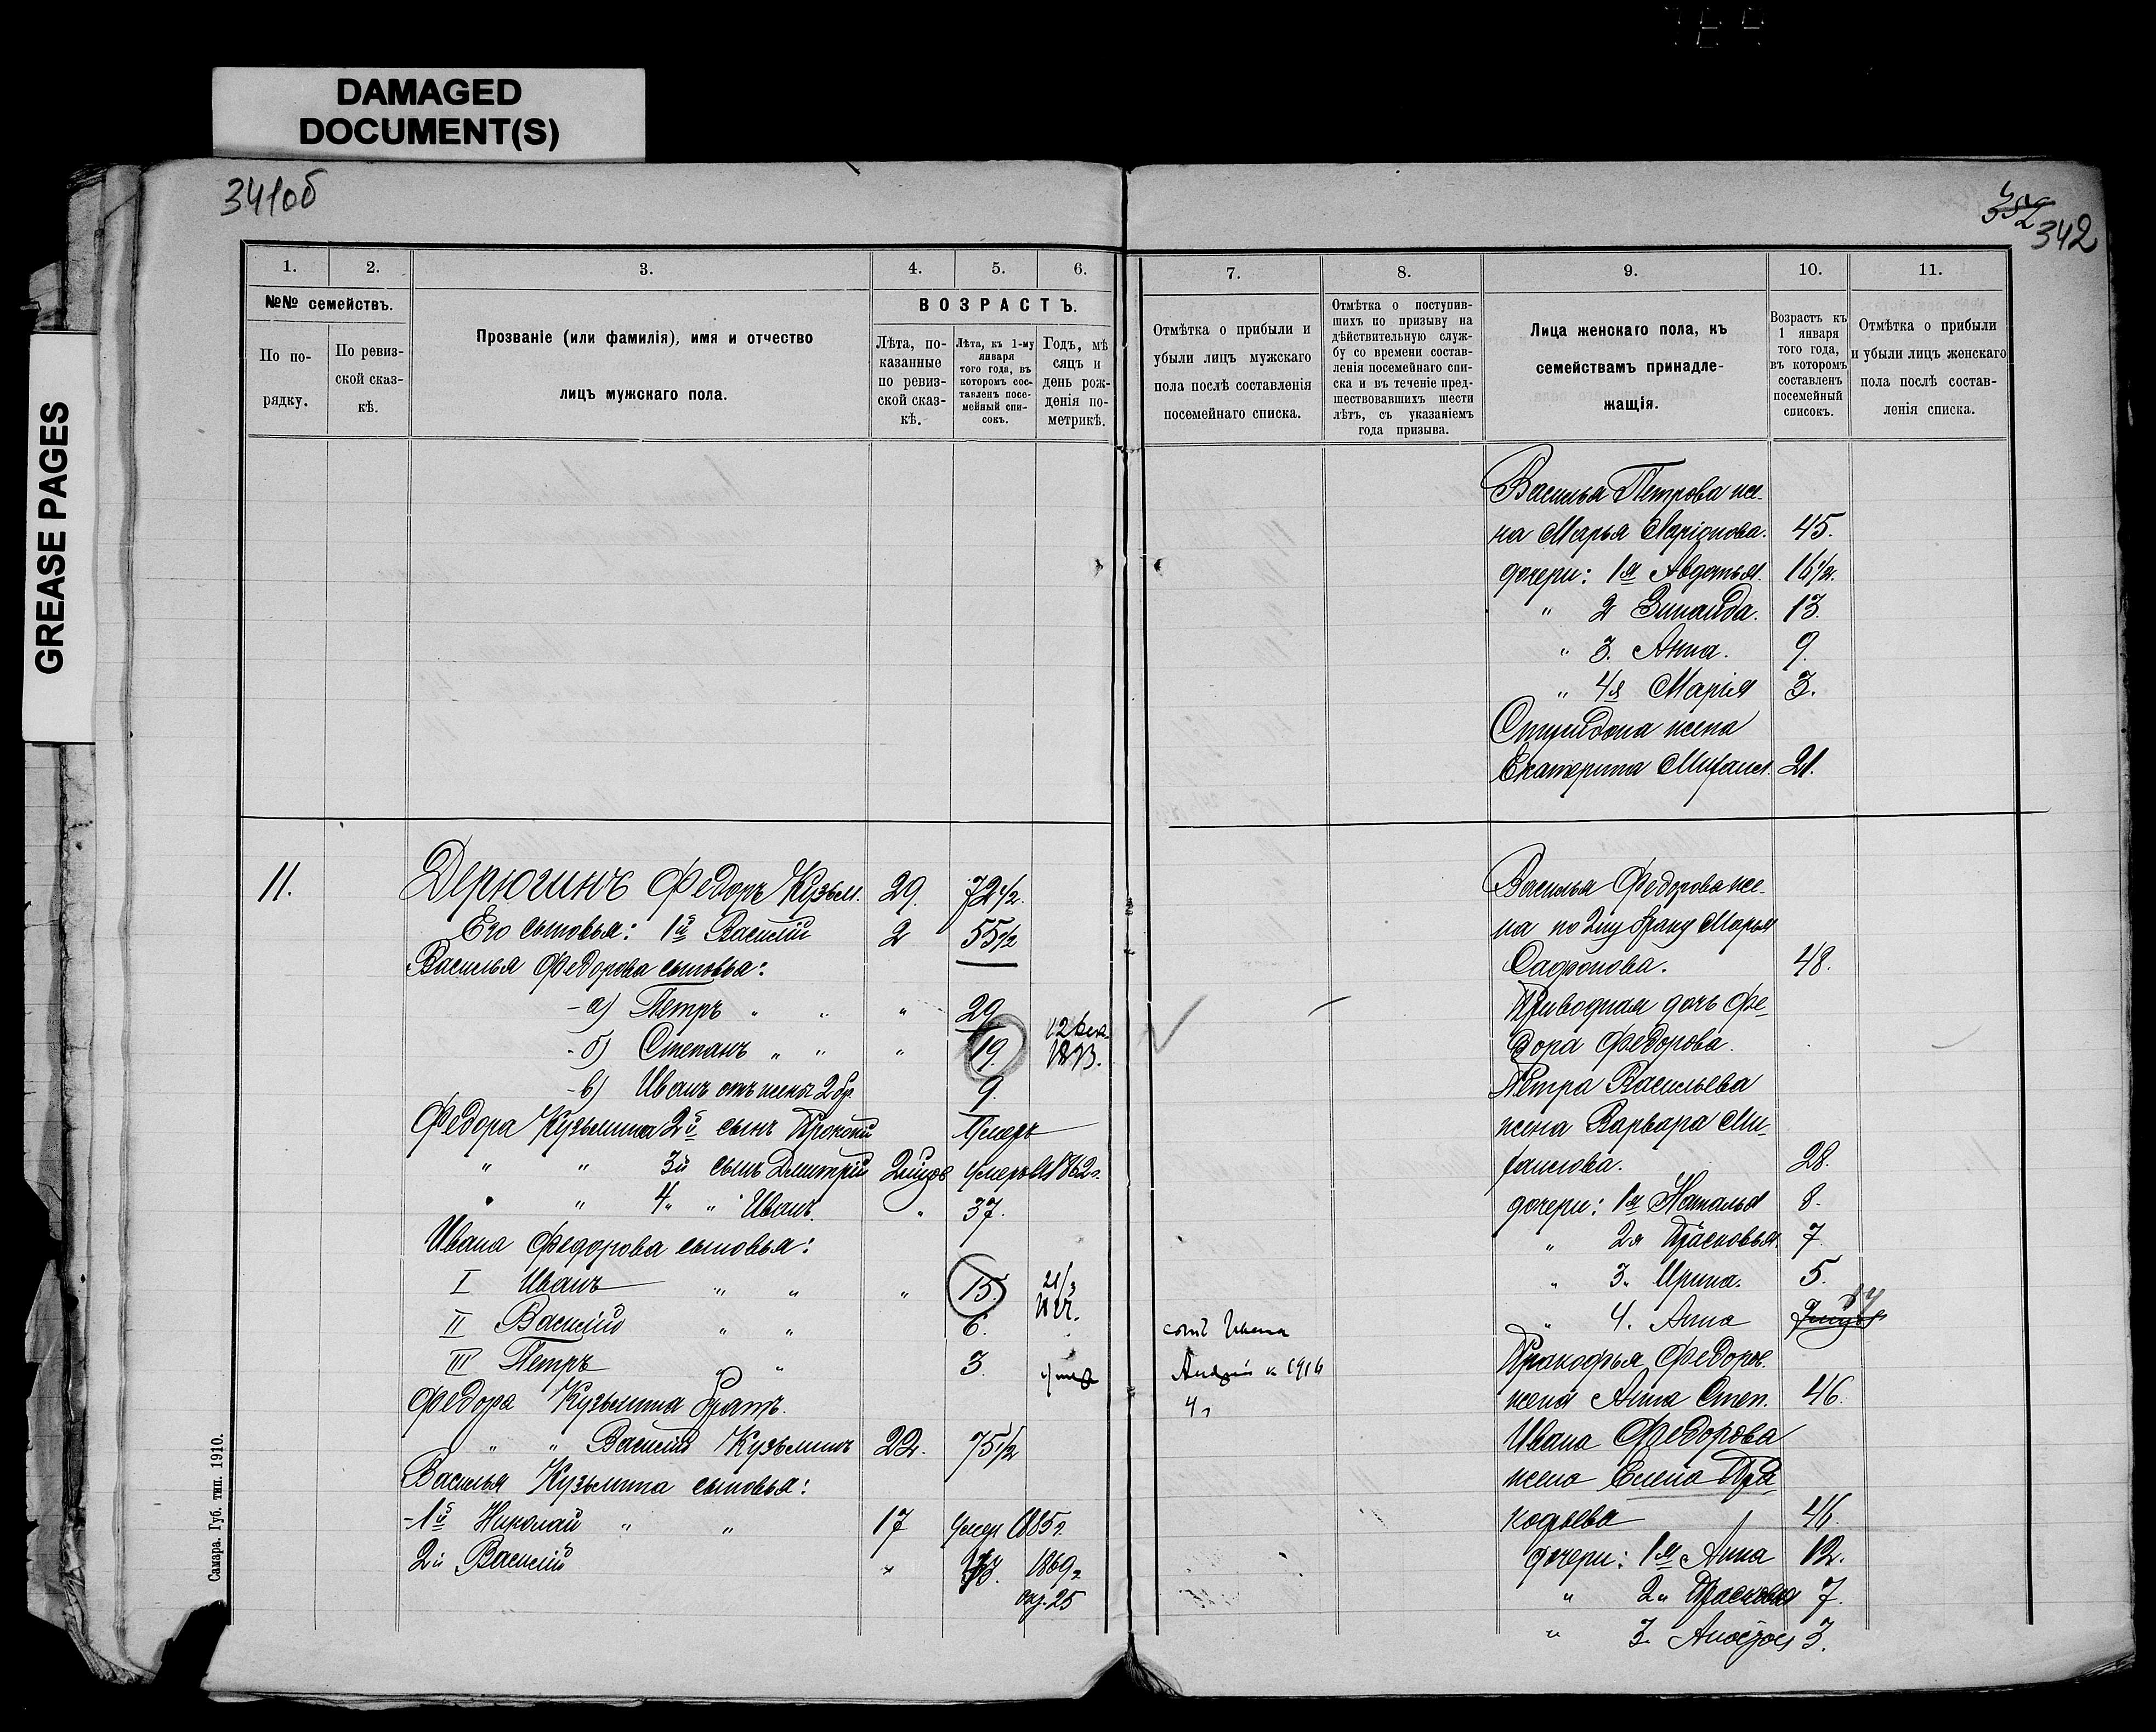 DAMAGED
DOCUMENT(S)
GREASE PAGES
341об
352
342
1. 2. 3. 4. 5. 6.
№№ семействъ.
По по-
рядку.
По ревиз-
ской сказ-
кѣ.
Прозваніе (или фамилія), имя и отчество
лицъ мужскаго пола.
ВОЗРАСТЪ.
Лѣта, по-
казанные
по ревиз-
ской сказ-
кѣ.
Лѣта, къ 1-му
января
того года, въ
которомъ сос-
тавленъ посе-
мейный спи-
сокъ.
Годъ, мѣ
сяцъ и
день рож-
денія по-
метрикѣ.
11. Дерюгинъ Федоръ Кузьм. 29. 72½.
Его сыновья: 1й Василій 2 55½
Василья Федорова сыновья:
-а) Петръ " " " 29
-б) Степанъ " " " 19. 12 1893.
-в) Иванъ отъ жены 2 бр. 9.
Федора Кузьмина 2й сынъ Прокопій Умеръ
" " 3й сынъ Дмитрій умеръ 1862г.
" " 4. " Иванъ. " 37.
Ивана Федорова сыновья:
I Иванъ " " " 15. 21/3
II Василій " " 6.
III Петръ " " 3.
Федора Кузьмина братъ.
" " Василій Кузьминъ 22. 75½
Василья Кузьмина сыновья:
-1й Николай " " 17 умер 1885г.
2й Василій 1869г
окт. 25
Самара. Губ. тип. 1910.
7. 8. 9. 10. 11.
Отмѣтка о прибыли и
убыли лицъ мужскаго
пола послѣ составленія
посемейнаго списка.
Отмѣтка о поступив-
шихъ по призыву на
дѣйствительную служ-
бу со времени состав-
ленія посемейнаго спи-
ска и въ теченіе пред-
шествовавшихъ шести
лѣтъ, съ указаніемъ
года призыва.
Лица женскаго пола, къ
семействамъ принадле-
жащія.
Возрастъ къ
1 января
того года,
въ которомъ
составленъ
посемейный
списокъ.
Отмѣтка о прибыли
и убыли лицъ женскаго
пола послѣ состав-
ленія списка.
Василья Петрова же-
на Марья Ларіонова. 45.
дочери: 1я Авдотья. 16½.
" 2 Зинаида. 13.
" 3. Анна. 9.
" 4я Марія 3.
жена
Екатерина Михаил. 21.
Василья Федорова же-
на по 2му браку Марья
Сафронова. 48.
Приводная дочь Фе-
дора Федорова.
Петра Васильева
жена Варвара Ми-
хаилова. 28.
дочери: 1я Наталья 8.
" 2я Прасковья. 7
" 3. Ирина. 5.
" 4. Анна
сынъ Ивана
Андрей к 1916
4г
Прокофья Федоров.
жена Анна Степ. 46.
Ивана Федорова
жена Елена Про
кофьева 46.
дочери: 1я Анна 12.
" 2я Прасковья 7.
" 3. 3.